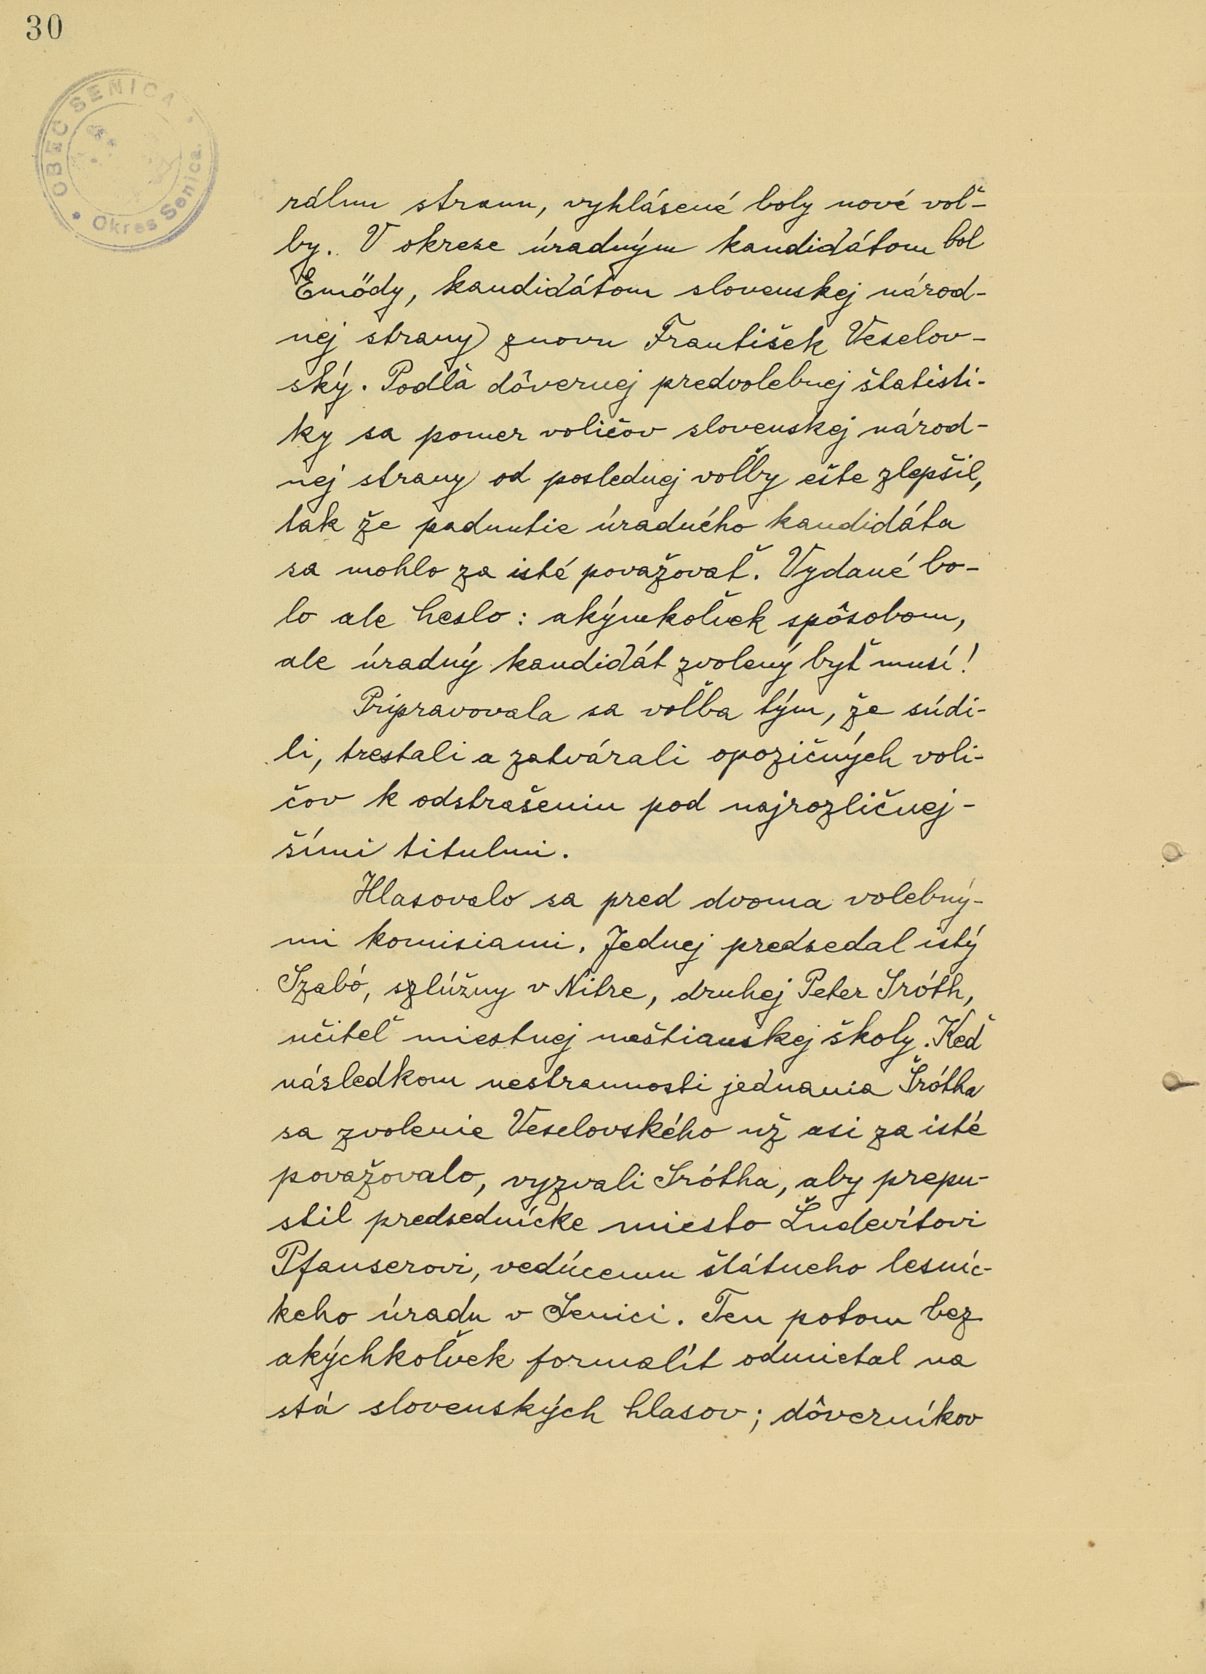 30
OBEC SENICA
Okres Senica
rálnu stranu, vyhlásené boly nové voľ-
by. V okrese úradným kandidátom bol
Emődy, kandidátom slovenskej národ-
nej strany znovu František Veselov-
ský. Podľa dôvernej predvolebnej štatisti-
ky sa pomer voličov slovenskej národ-
nej strany od poslednej voľby ešte zlepšil,
tak že padnutie úradného kandidáta
sa mohlo za isté považovať. Vydané bo-
lo ale heslo: akýmkoľvek spôsobom,
ale úradný kandidát zvolený byť musí!
Pripravovala sa voľba tým, že súdi-
li, trestali a zatvárali opozičných voli-
čov k odstrašeniu pod najrozličnej-
šími titulmi.
Hlasovalo sa pred dvoma volebný-
mi komisiami. Jednej predsedal istý
Szabó, szlúžny v Nitre, druhej Peter Sróth,
učiteľ miestnej meštianskej školy. Keď
následkom nestrannosti jednania Šrótha
sa zvolenie Veselovského už asi za isté
považovalo, vyzvali Srótha, aby prepu-
stil predsednícke miesto Ľudevítovi
Pfanserovi, vedúcemu štátneho lesníc-
keho úradu v Senici. Ten potom bez
akýchkoľvek formalít odmietal na
stá slovenských hlasov; dôverníkov